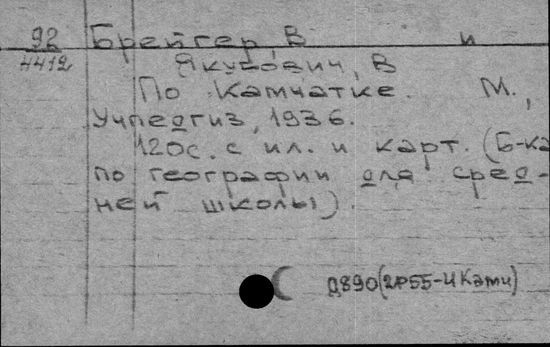 92 Брейгер, В и
4412 Якубович, В
По Камчатке. М.,
Учпедгиз, 1936.
120с. с ил. и карт. (Б-ка
по географии для сред-
ней школы).
Д890(2Р55-4Камч)